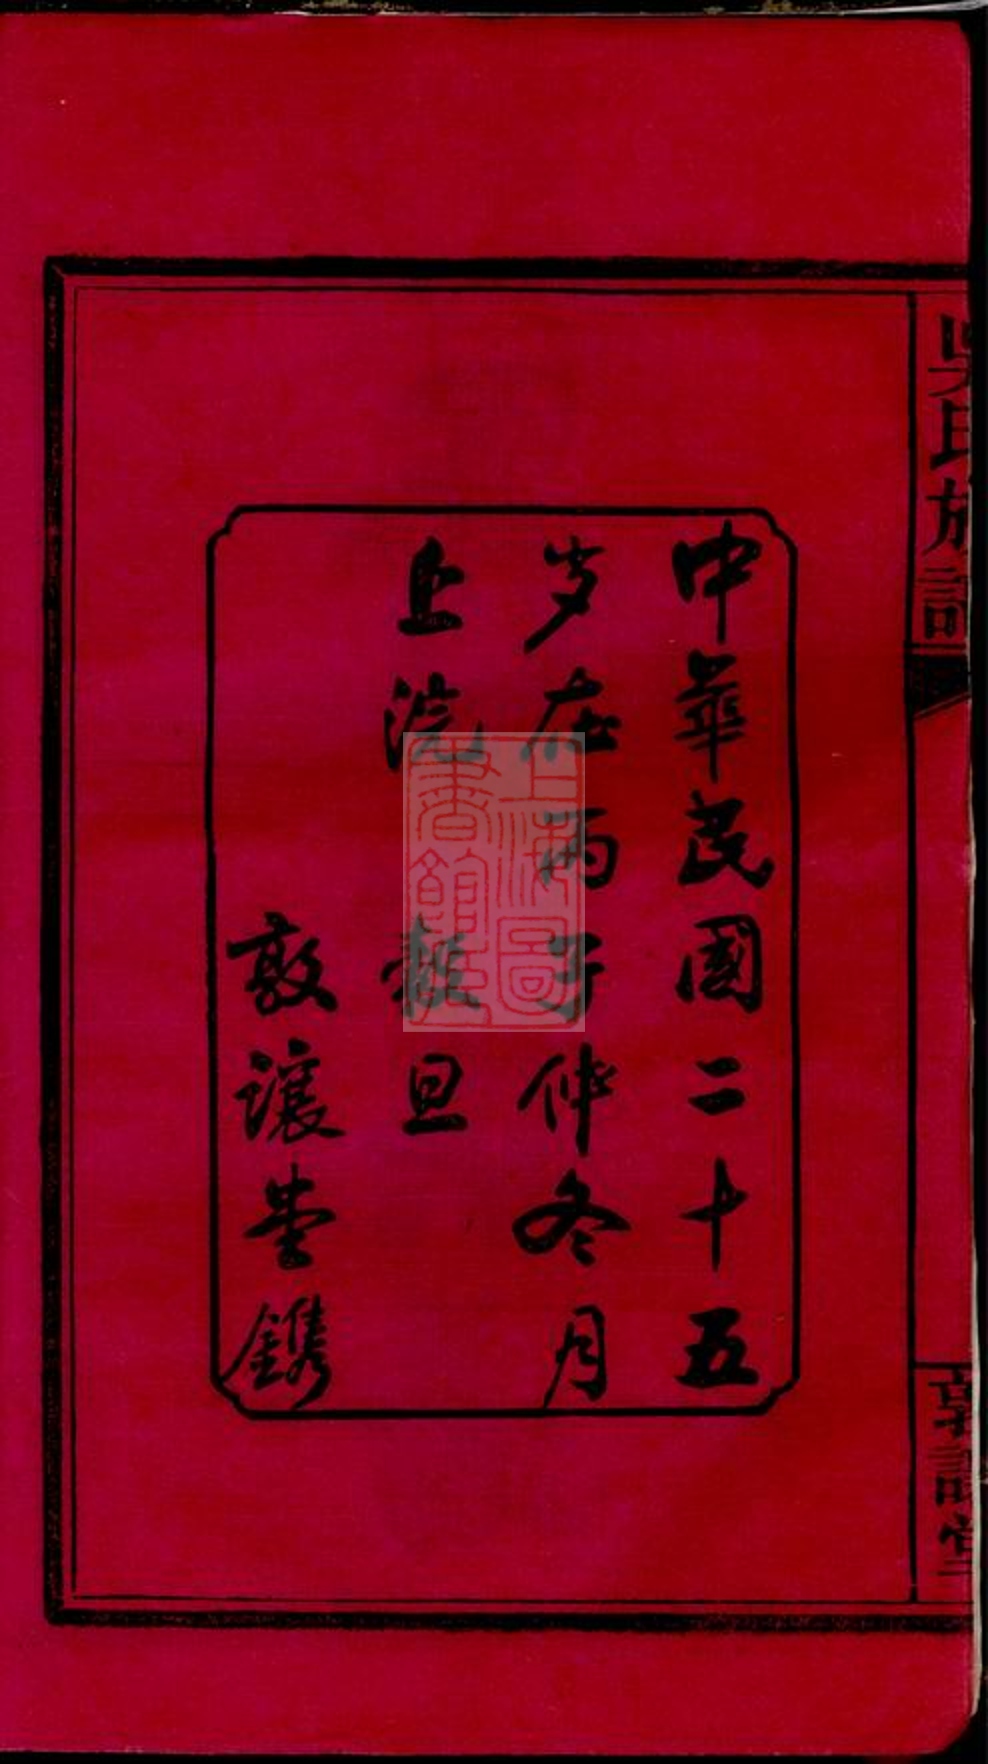 中華民國二十五
岁在丙子仲冬月
上浣穀旦
敦讓堂鐫
吳氏族譜
敦讓堂
上海圖書館藏